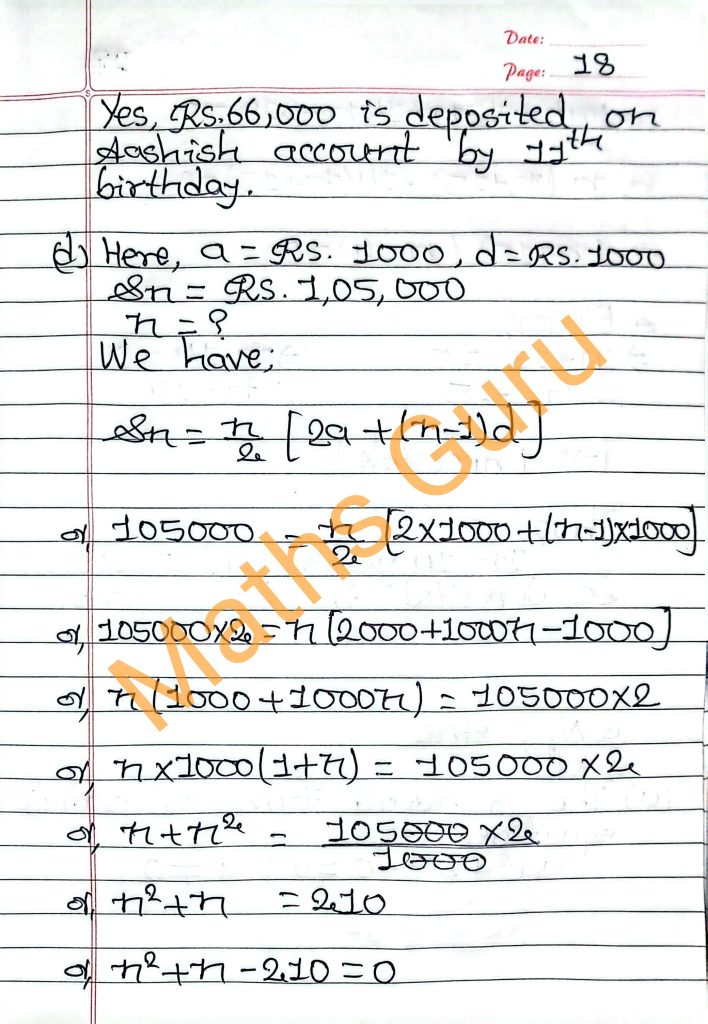 Date:
Page: 18
Yes, Rs.66,000 is deposited on
Aashish account by 11th
birthday.
d) Here, a = Rs. 1000, d = Rs. 1000
Sn = Rs. 1,05,000
n = ?
We have;
Sn = n/2 [2a + (n-1)d]
or, 105000 = n/2 [2×1000 + (n-1)×1000]
or, 105000×2 = n [2000+1000n-1000]
or, n(1000+1000n) = 105000×2
or, n×1000(1+n) = 105000×2
or, n+n² = 105000×2/1000
or, n²+n = 210
or, n²+n-210=0
Maths Guru